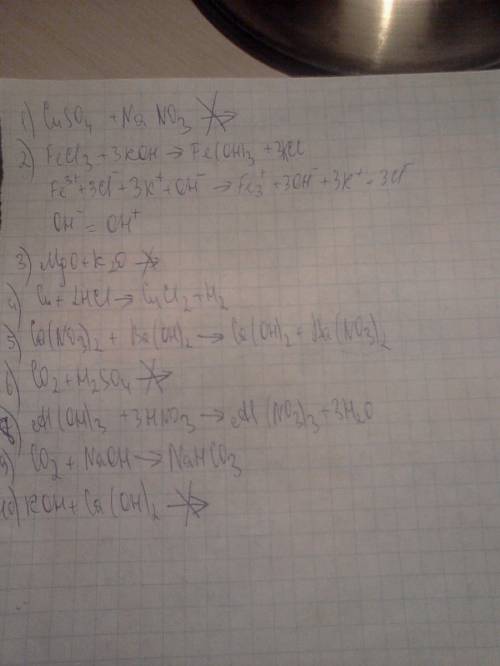 1) CuSO4 + NaNO3 ↛
2) FeCl3 + 3KOH → Fe(OH)3 + 3KCl
Fe3+ + 3Cl- + 3K+ + OH- → Fe3+ + 3OH- + 3K+ - 3Cl-
OH- = OH+
3) MgO + K2O ↛
4) Cu + 2HCl → CuCl2 + H2
5) Ca(NO3)2 + Ba(OH)2 → Ca(OH)2 + Ba(NO3)2
6) CO2 + H2SO4 ↛
8) Al(OH)3 + 3HNO3 → Al(NO3)3 + 3H2O
9) CO2 + NaOH → NaHCO3
10) KOH + Ca(OH)2 ↛